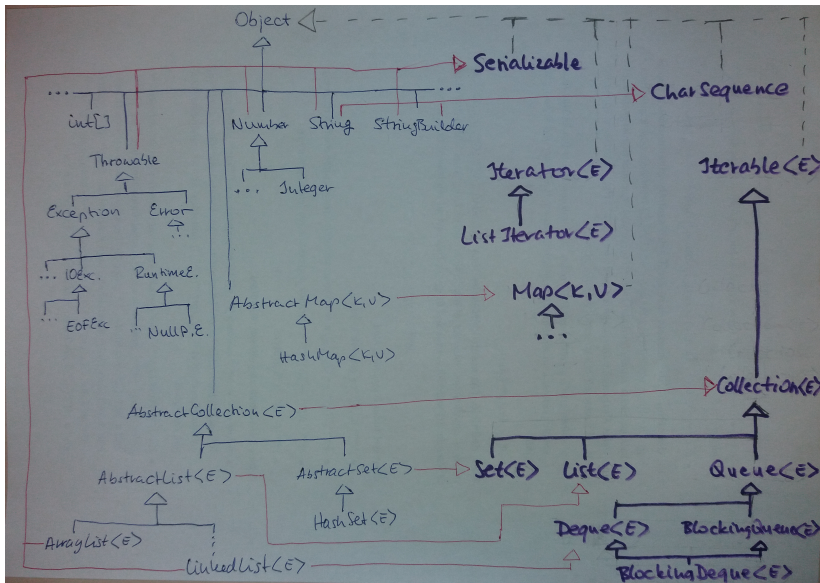 Object
Serializable
...
...
CharSequence
int[]
Number
String
StringBuilder
Throwable
Iterator<E>
Iterable<E>
...
Integer
Exception
Error
...
ListIterator<E>
... IOExc.
RuntimeE.
AbstractMap<K,V>
Map<K,V>
...
EOFExc
... NullP.E.
...
HashMap<K,V>
Collection<E>
AbstractCollection<E>
AbstractList<E>
AbstractSet<E>
Set<E>
List<E>
Queue<E>
HashSet<E>
Deque<E>
BlockingQueue<E>
ArrayList<E>
LinkedList<E>
BlockingDeque<E>